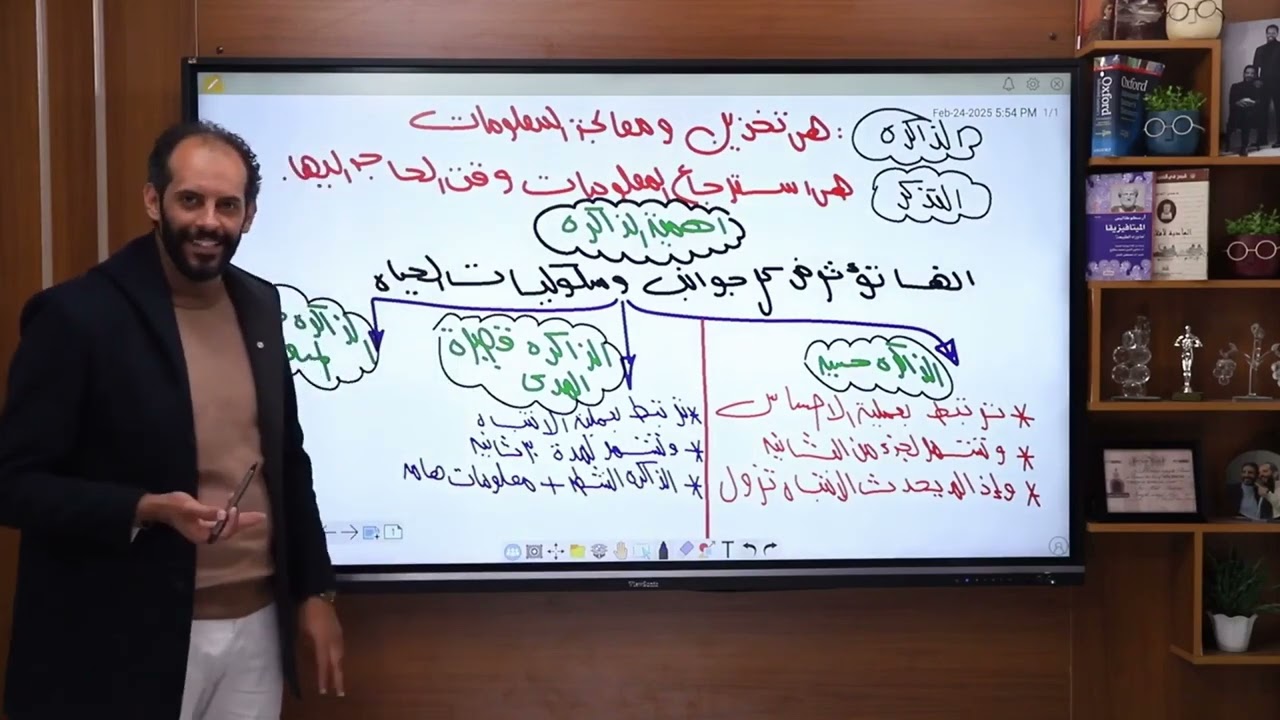 Feb-24-2025 5:54 PM 1/1
الذاكرة : هى تخزين ومعالجة المعلومات
التذكر هى استرجاع المعلومات وقت الحاجه اليها.
اهمية الذاكره
انها تؤثر فى كل جوانب وسلوكيات الحياه
الذاكره حسيه
* ترتبط بعملية الاحساس
* وتستمر لجزء من الثانيه
* وإذا لم يحدث الانتباه تزول
الذاكره قصيرة
المدى
* ترتبط بعملية الانتباه
* وتستمر لمدة ٣٠ ثانيه
* الذاكره النشطه + معلومات هامه
الذاكره
ViewSonic
Oxford
Oxford
أرسطوطاليس
الميتافيزيقا